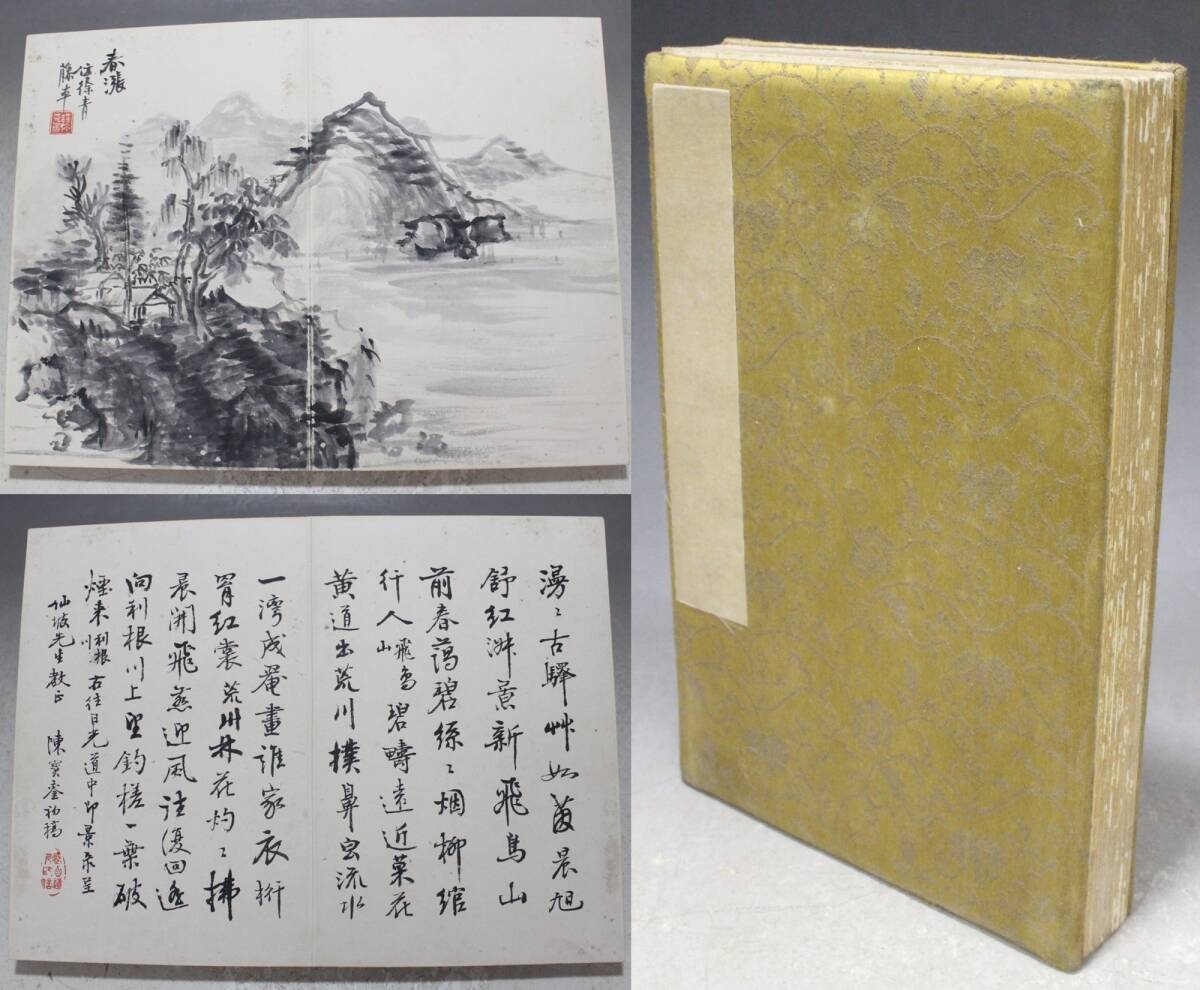 春漲
仿徐青
藤本
漫〻古驛艸如茵晨旭
舒紅淑景新飛鳥山
前春藹碧絲〻烟柳綰
行人飛鳥山碧疇遠近菜花
黃道出荒川撲鼻香流水
一灣成罨畫誰家衣桁
罥紅裳荒川林花灼〻拂
晨開飛燕迎風往復回遙
向利根川上望釣槎一葉破
煙來利根川右往日光道中即景录呈
仙坡先生教正 陳寶
初稿